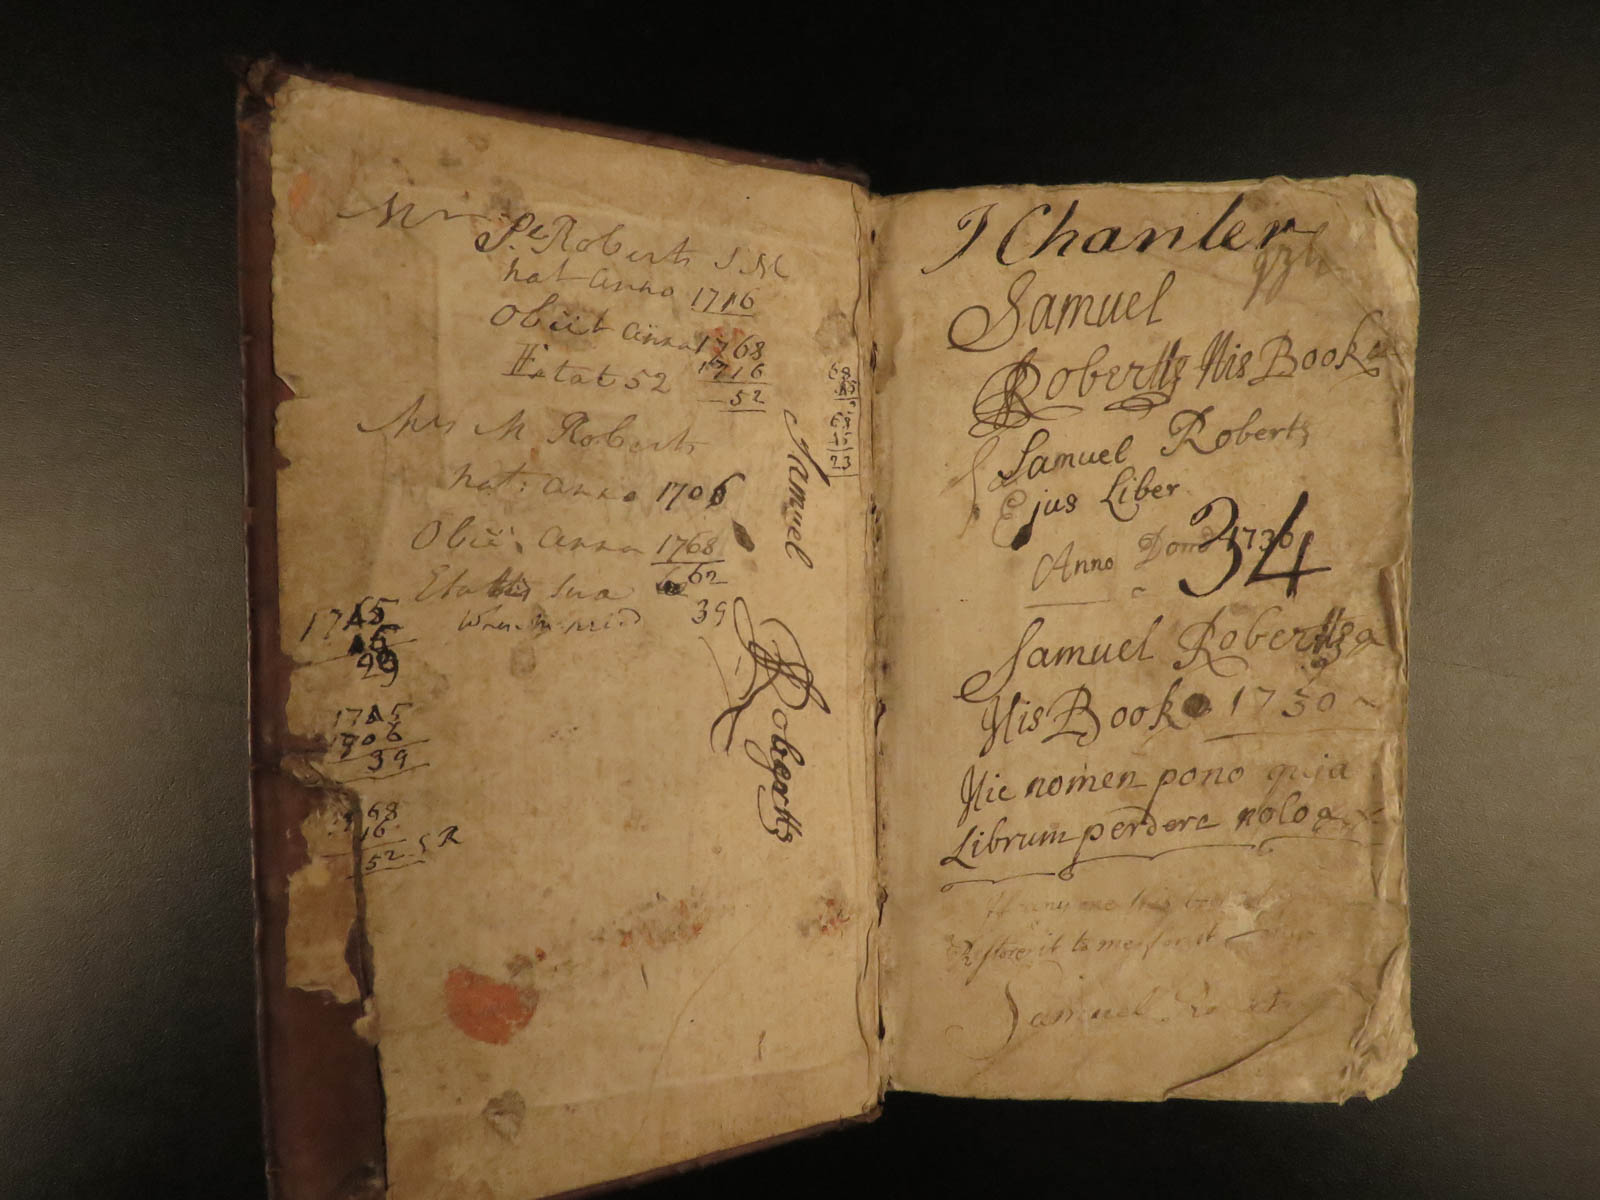 Mr Roberts
nat anno 1716
Obiit anno 1768
Ætat 52
1716
52
Mrs M Roberts
nat: anno 1706
Obii anno 1768
sua 62
39
1745
16
29
1745
1706
39
68
16
52 S R
68
23
Samuel
Roberts
J Chanler
Samuel
Roberts His Book
Samuel Roberts
Ejus Liber
Anno Dom 1736
34
Samuel Roberts
His Book 1730
Hic nomen pono quia
Librum perdere nolo
If any one
Restore it to me for it
Samuel